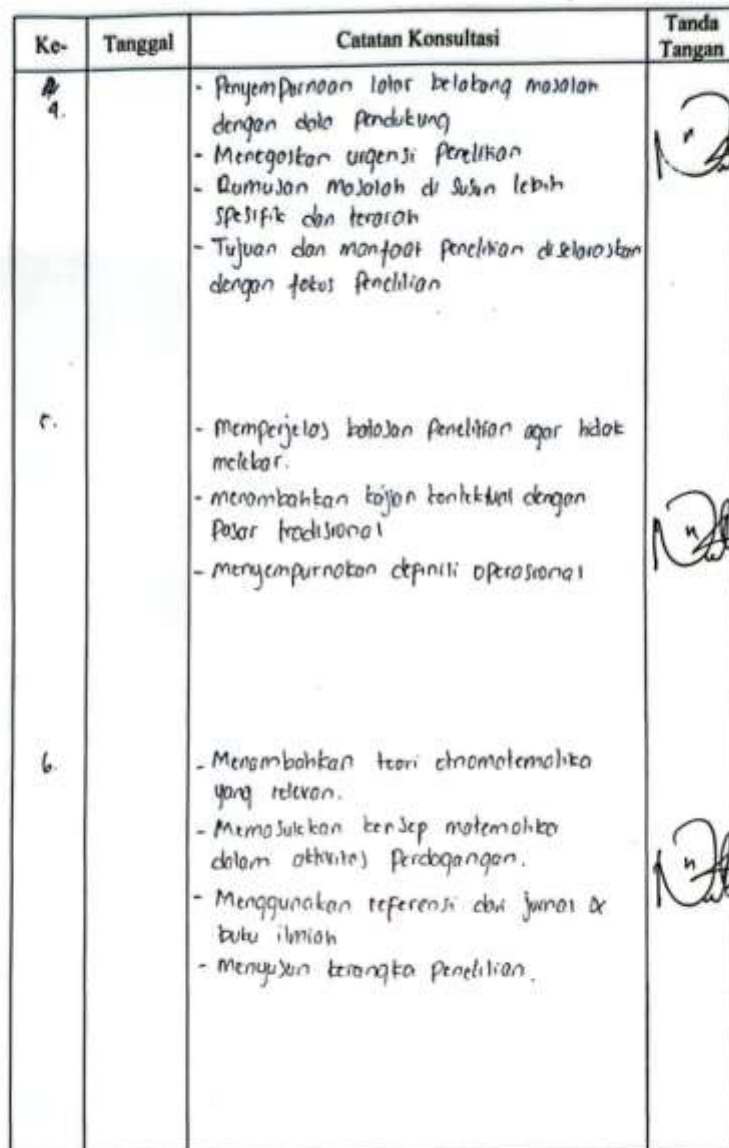 Ke- Tanggal Catatan Konsultasi Tanda Tangan
4. - Penyempurnaan latar belakang masalah
dengan data pendukung
- Menegaskan urgensi Penelitian
- Rumusan masalah di susun lebih
spesifik dan terarah
- Tujuan dan manfaat penelitian diselaraskan
dengan fokus Penelitian
5. - Memperjelas batasan Penelitian agar tidak
melebar.
- menambahkan kajian kontekstual dengan
Pasar tradisional
- menyempurnakan definisi operasional
6. - Menambahkan teori etnomatematika
yang relevan.
- Memasukkan konsep matematika
dalam aktivitas Perdagangan.
- Menggunakan referensi dari jurnal &
buku ilmiah
- Menyusun kerangka Penelitian.